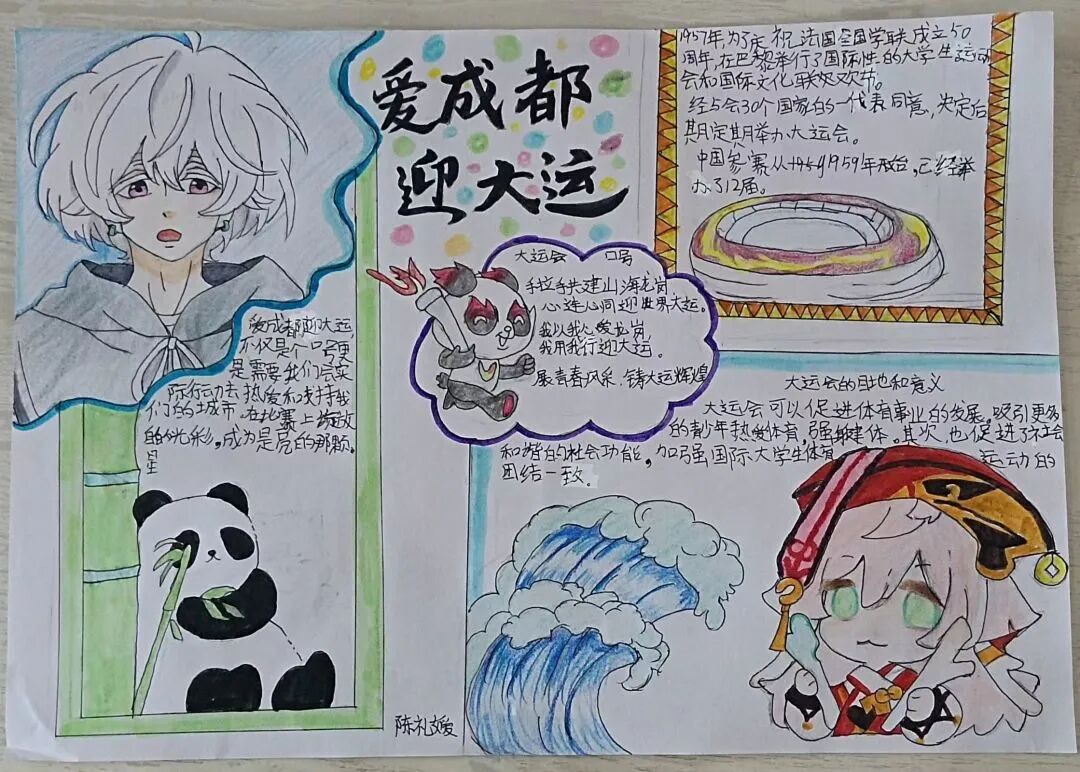 爱成都
迎大运
1957年,为了庆祝法国全国学联成立50
周年,在巴黎举行了国际性的大学生运动
会和国际文化联欢节。
经上会30个国家的一代表同意,决定后
期定期举办大运会。
中国参赛从1959年开始,已经举
办312届。
大运会 口号
手拉手共建山海龙岗
心连心同迎世界大运。
我以我心爱龙岗
我用我行迎大运。
展青春风采,铸大运辉煌
爱成都迎大运,
不仅是个口号更
是需要我们去实
际行动去热爱和支持我
们的城市,在比赛上绽放
的光彩,成为最亮的那颗
星
大运会的目地和意义
大运会可以促进体育事业的发展。吸引更多
的青少年热爱体育,强身健体。其次,也促进了社会
和谐的社会功能,加强国际大学生体育 运动的
团结一致。
陈礼媛